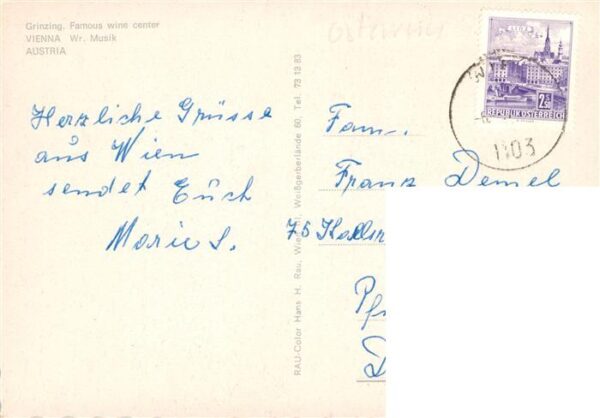 Grinzing. Famous wine center
VIENNA Wr. Musik
AUSTRIA
Herzliche Grüsse
aus Wien
sendet Euch
RAU-Color Hans H. Rau, Wien III, Weißgerberlände 60, Tel. 73 13 83
Österreich
2.50
REPUBLIK ÖSTERREICH
1103
Fam.
Franz Demel
75